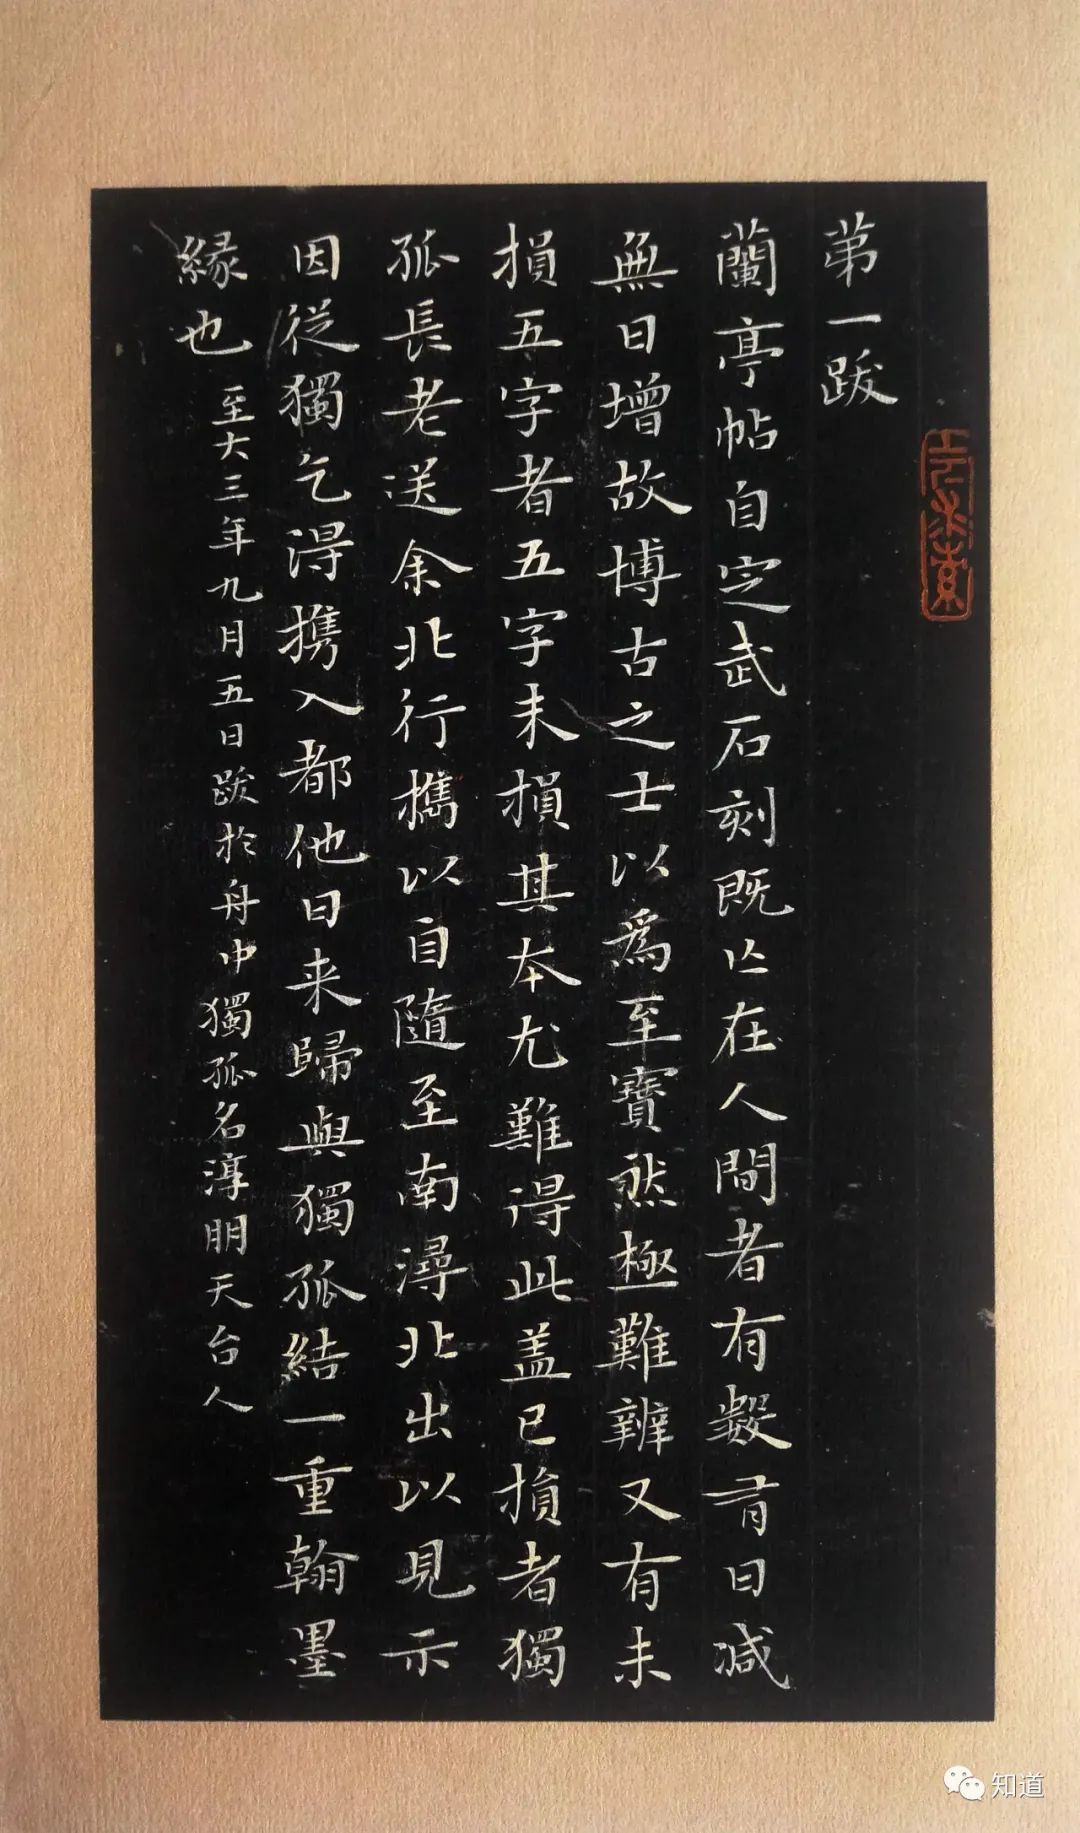 苐一跋
蘭亭帖自定武石刻既亾在人間者有數有日减
無日增故博古之士以為至寶然極難辨又有未
損五字者五字未損其本尤難得此盖已損者獨
孤長老送余北行攜以自隨至南潯北出以見示
因從獨乞得携入都他日来歸與獨孤結一重翰墨
縁也 至大三年九月五日跋於舟中獨孤名淳朋天台人
知道